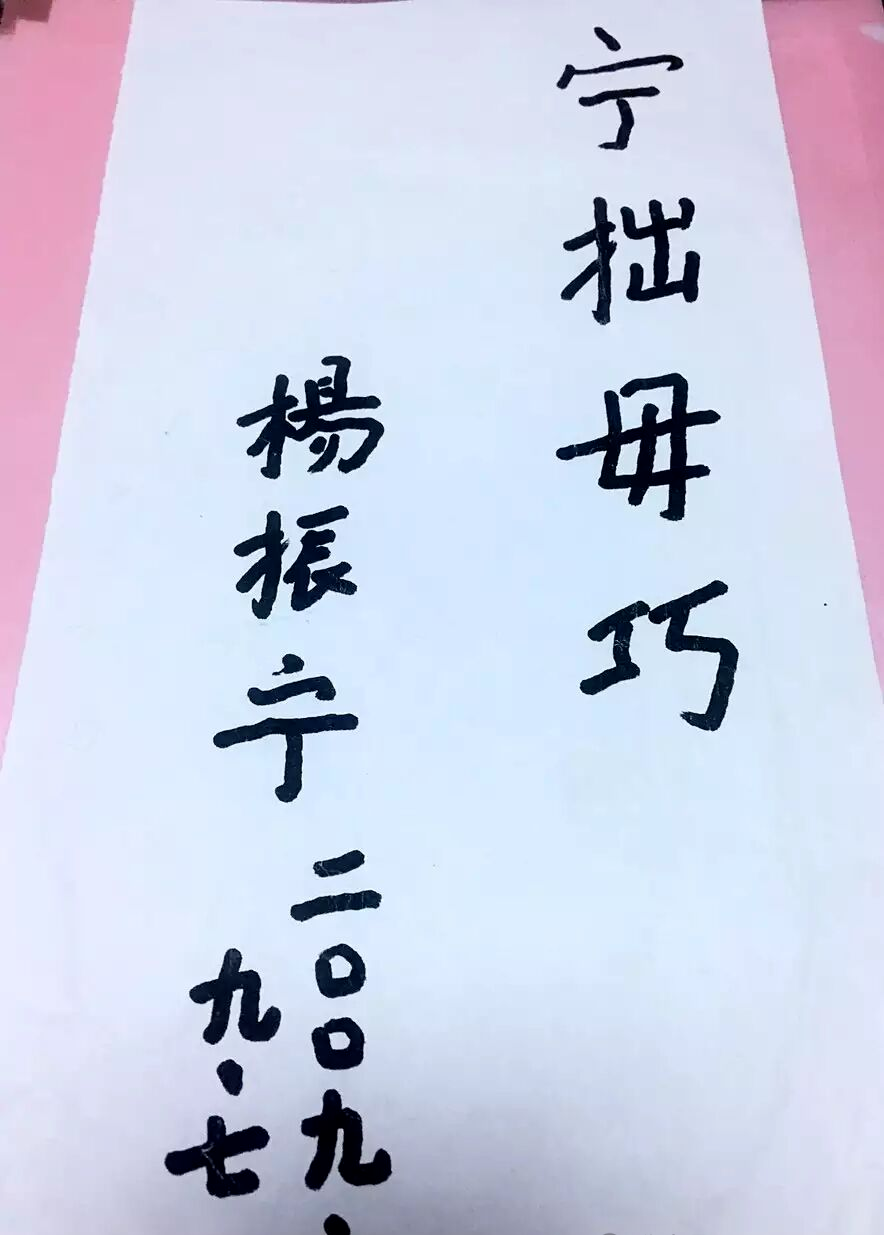 宁拙毋巧
楊振宁
二〇〇九.
九.七